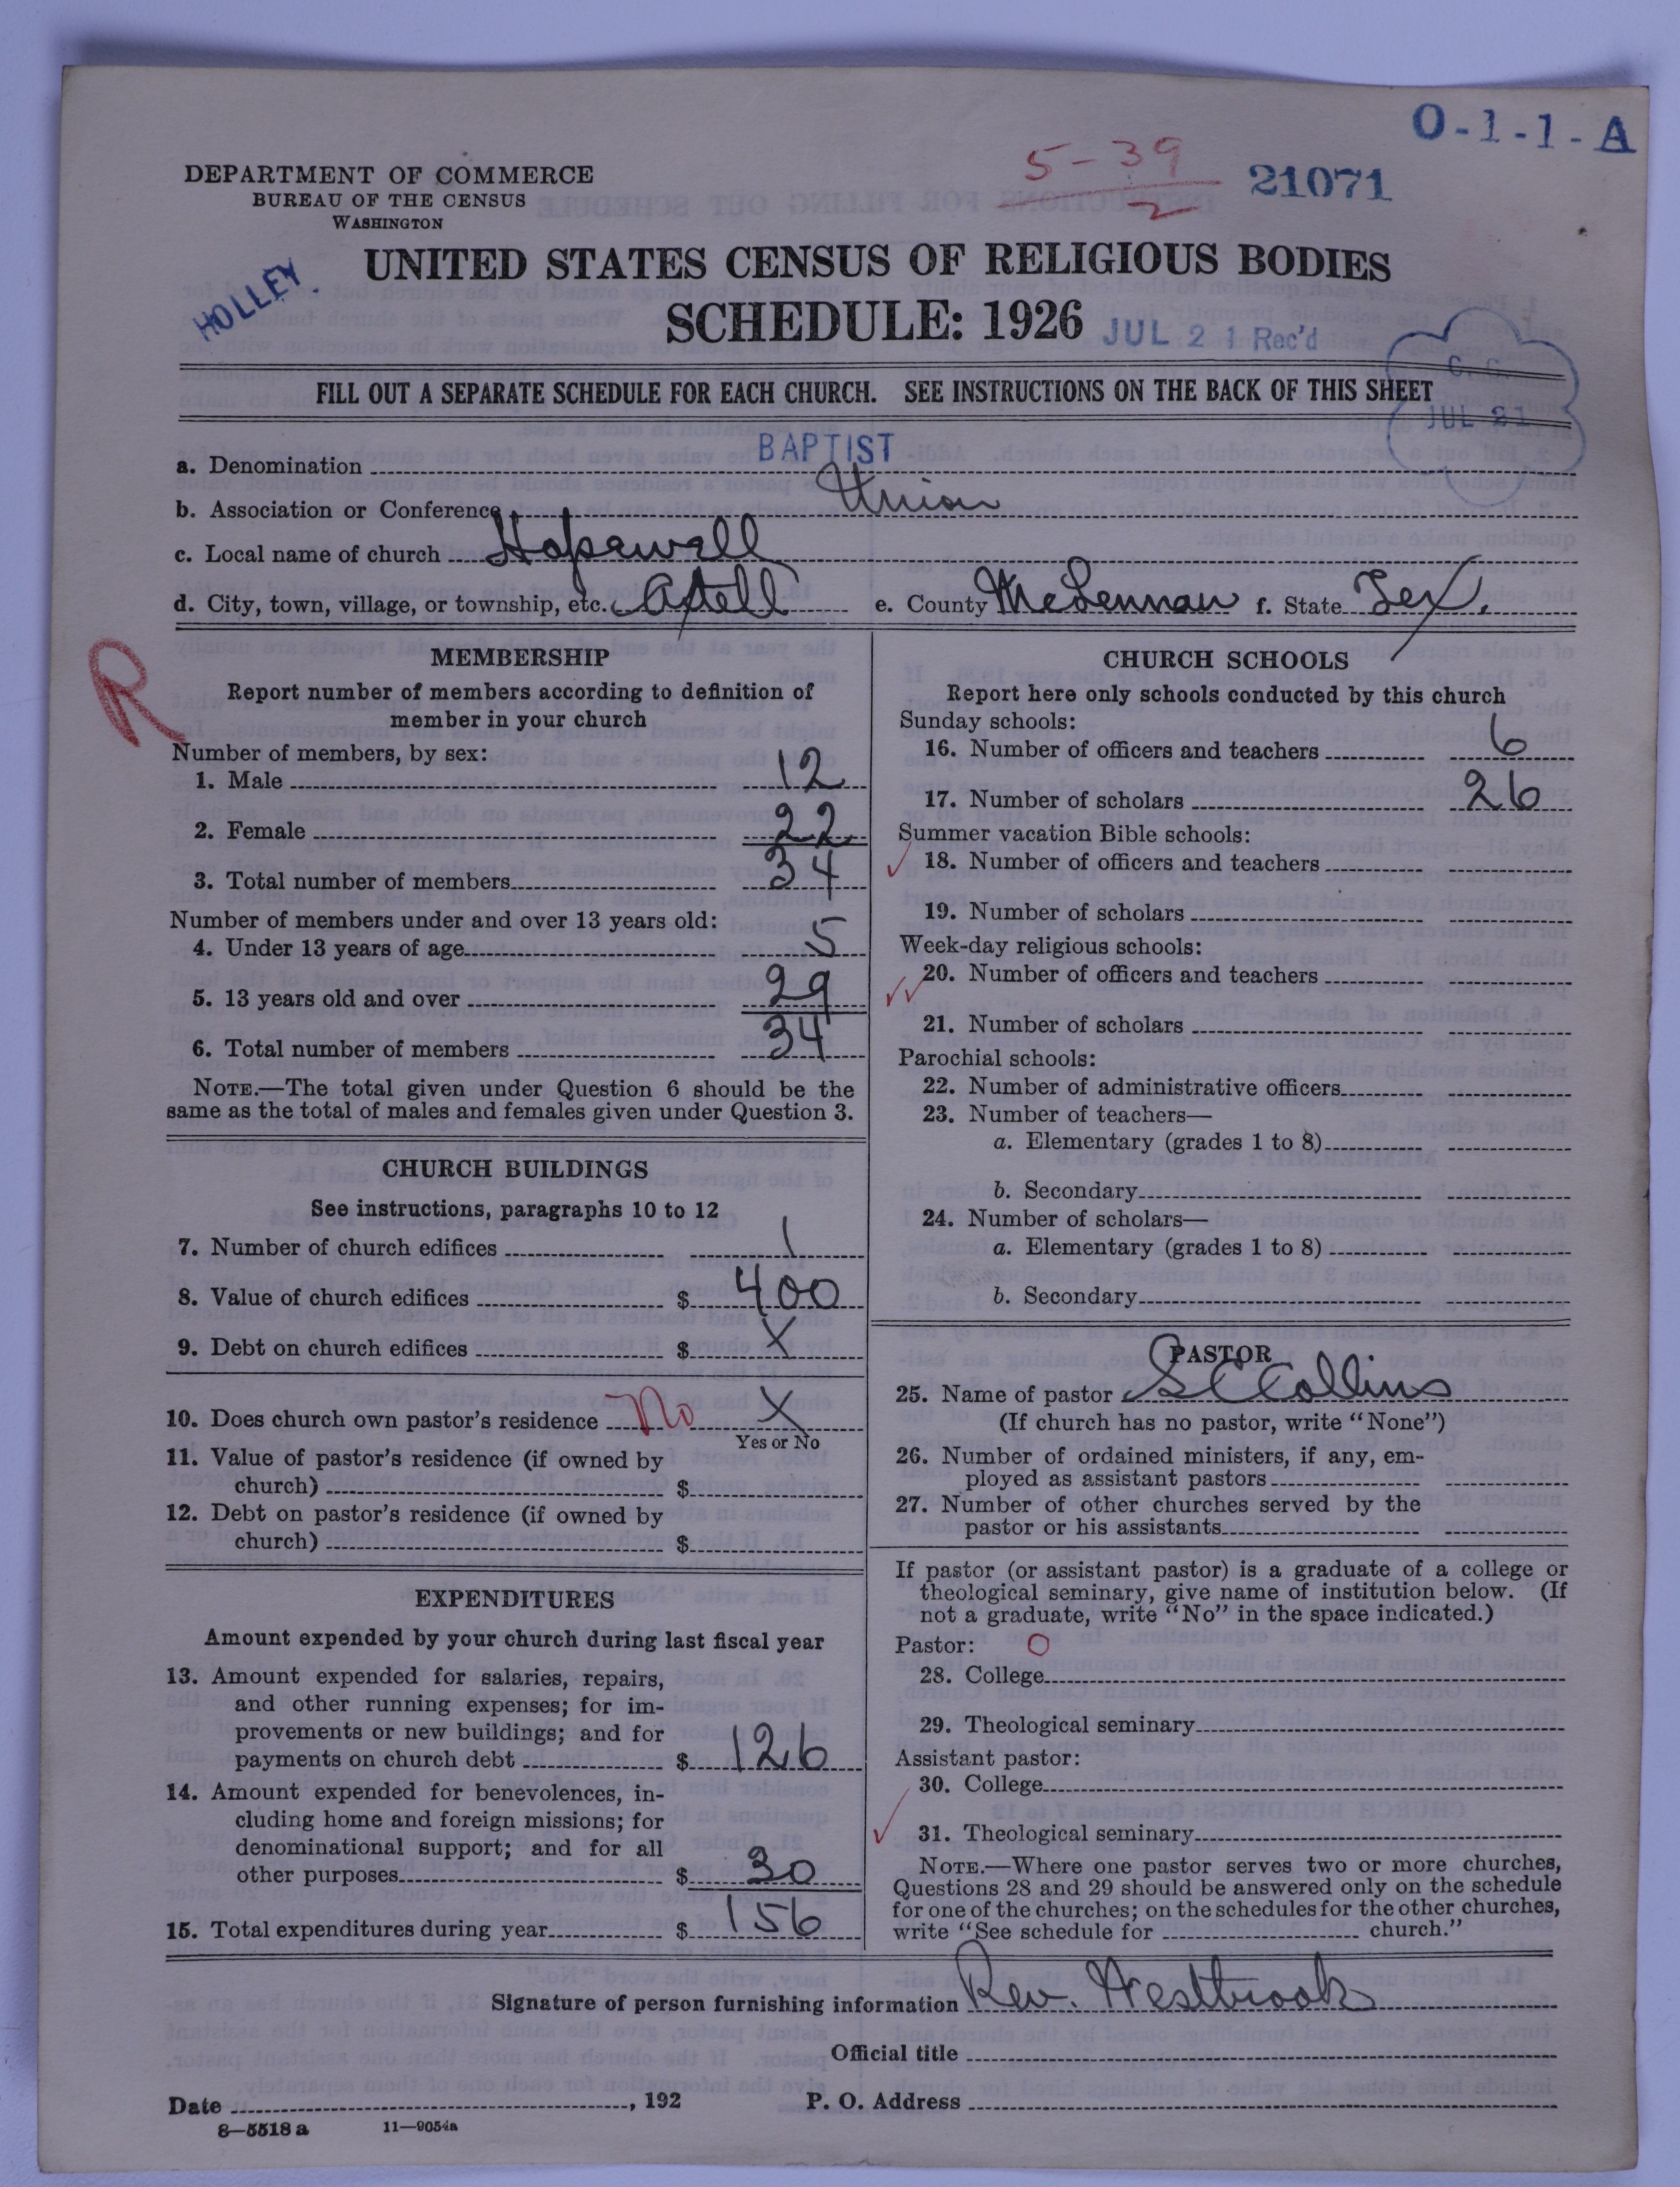 O-1-1-A
5-39
2
21071
DEPARTMENT OF COMMERCE
BUREAU OF THE CENSUS
WASHINGTON
HOLLEY.
UNITED STATES CENSUS OF RELIGIOUS BODIES
SCHEDULE: 1926
JUL 21 Rec'd
JUL 21
FILL OUT A SEPARATE SCHEDULE FOR EACH CHURCH. SEE INSTRUCTIONS ON THE BACK OF THIS SHEET
a. Denomination BAPTIST
b. Association or Conference Union
c. Local name of church Hopewell
d. City, town, village, or township, etc. Axtell e. County McLennan f. State Tex.
R
MEMBERSHIP
Report number of members according to definition of
member in your church
Number of members, by sex:
1. Male 12
2. Female 22
3. Total number of members 34
Number of members under and over 13 years old:
4. Under 13 years of age 5
5. 13 years old and over 29
6. Total number of members 34
NOTE.—The total given under Question 6 should be the
same as the total of males and females given under Question 3.
CHURCH BUILDINGS
See instructions, paragraphs 10 to 12
7. Number of church edifices 1
8. Value of church edifices $ 400
9. Debt on church edifices $ X
10. Does church own pastor's residence No X
Yes or No
11. Value of pastor's residence (if owned by
church) $
12. Debt on pastor's residence (if owned by
church) $
EXPENDITURES
Amount expended by your church during last fiscal year
13. Amount expended for salaries, repairs,
and other running expenses; for im-
provements or new buildings; and for
payments on church debt $ 126
14. Amount expended for benevolences, in-
cluding home and foreign missions; for
denominational support; and for all
other purposes $ 30
15. Total expenditures during year $ 156
CHURCH SCHOOLS
Report here only schools conducted by this church
Sunday schools:
16. Number of officers and teachers 6
17. Number of scholars 26
Summer vacation Bible schools:
18. Number of officers and teachers
19. Number of scholars
Week-day religious schools:
20. Number of officers and teachers
21. Number of scholars
Parochial schools:
22. Number of administrative officers
23. Number of teachers—
a. Elementary (grades 1 to 8)
b. Secondary
24. Number of scholars—
a. Elementary (grades 1 to 8)
b. Secondary
PASTOR
25. Name of pastor S C Collins
(If church has no pastor, write "None")
26. Number of ordained ministers, if any, em-
ployed as assistant pastors
27. Number of other churches served by the
pastor or his assistants
If pastor (or assistant pastor) is a graduate of a college or
theological seminary, give name of institution below. (If
not a graduate, write "No" in the space indicated.)
Pastor: O
28. College
29. Theological seminary
Assistant pastor:
30. College
31. Theological seminary
NOTE.—Where one pastor serves two or more churches,
Questions 28 and 29 should be answered only on the schedule
for one of the churches; on the schedules for the other churches,
write "See schedule for church."
Signature of person furnishing information Rev. Westbrook
Official title
Date , 192 P. O. Address
8—5518 a 11—9054a